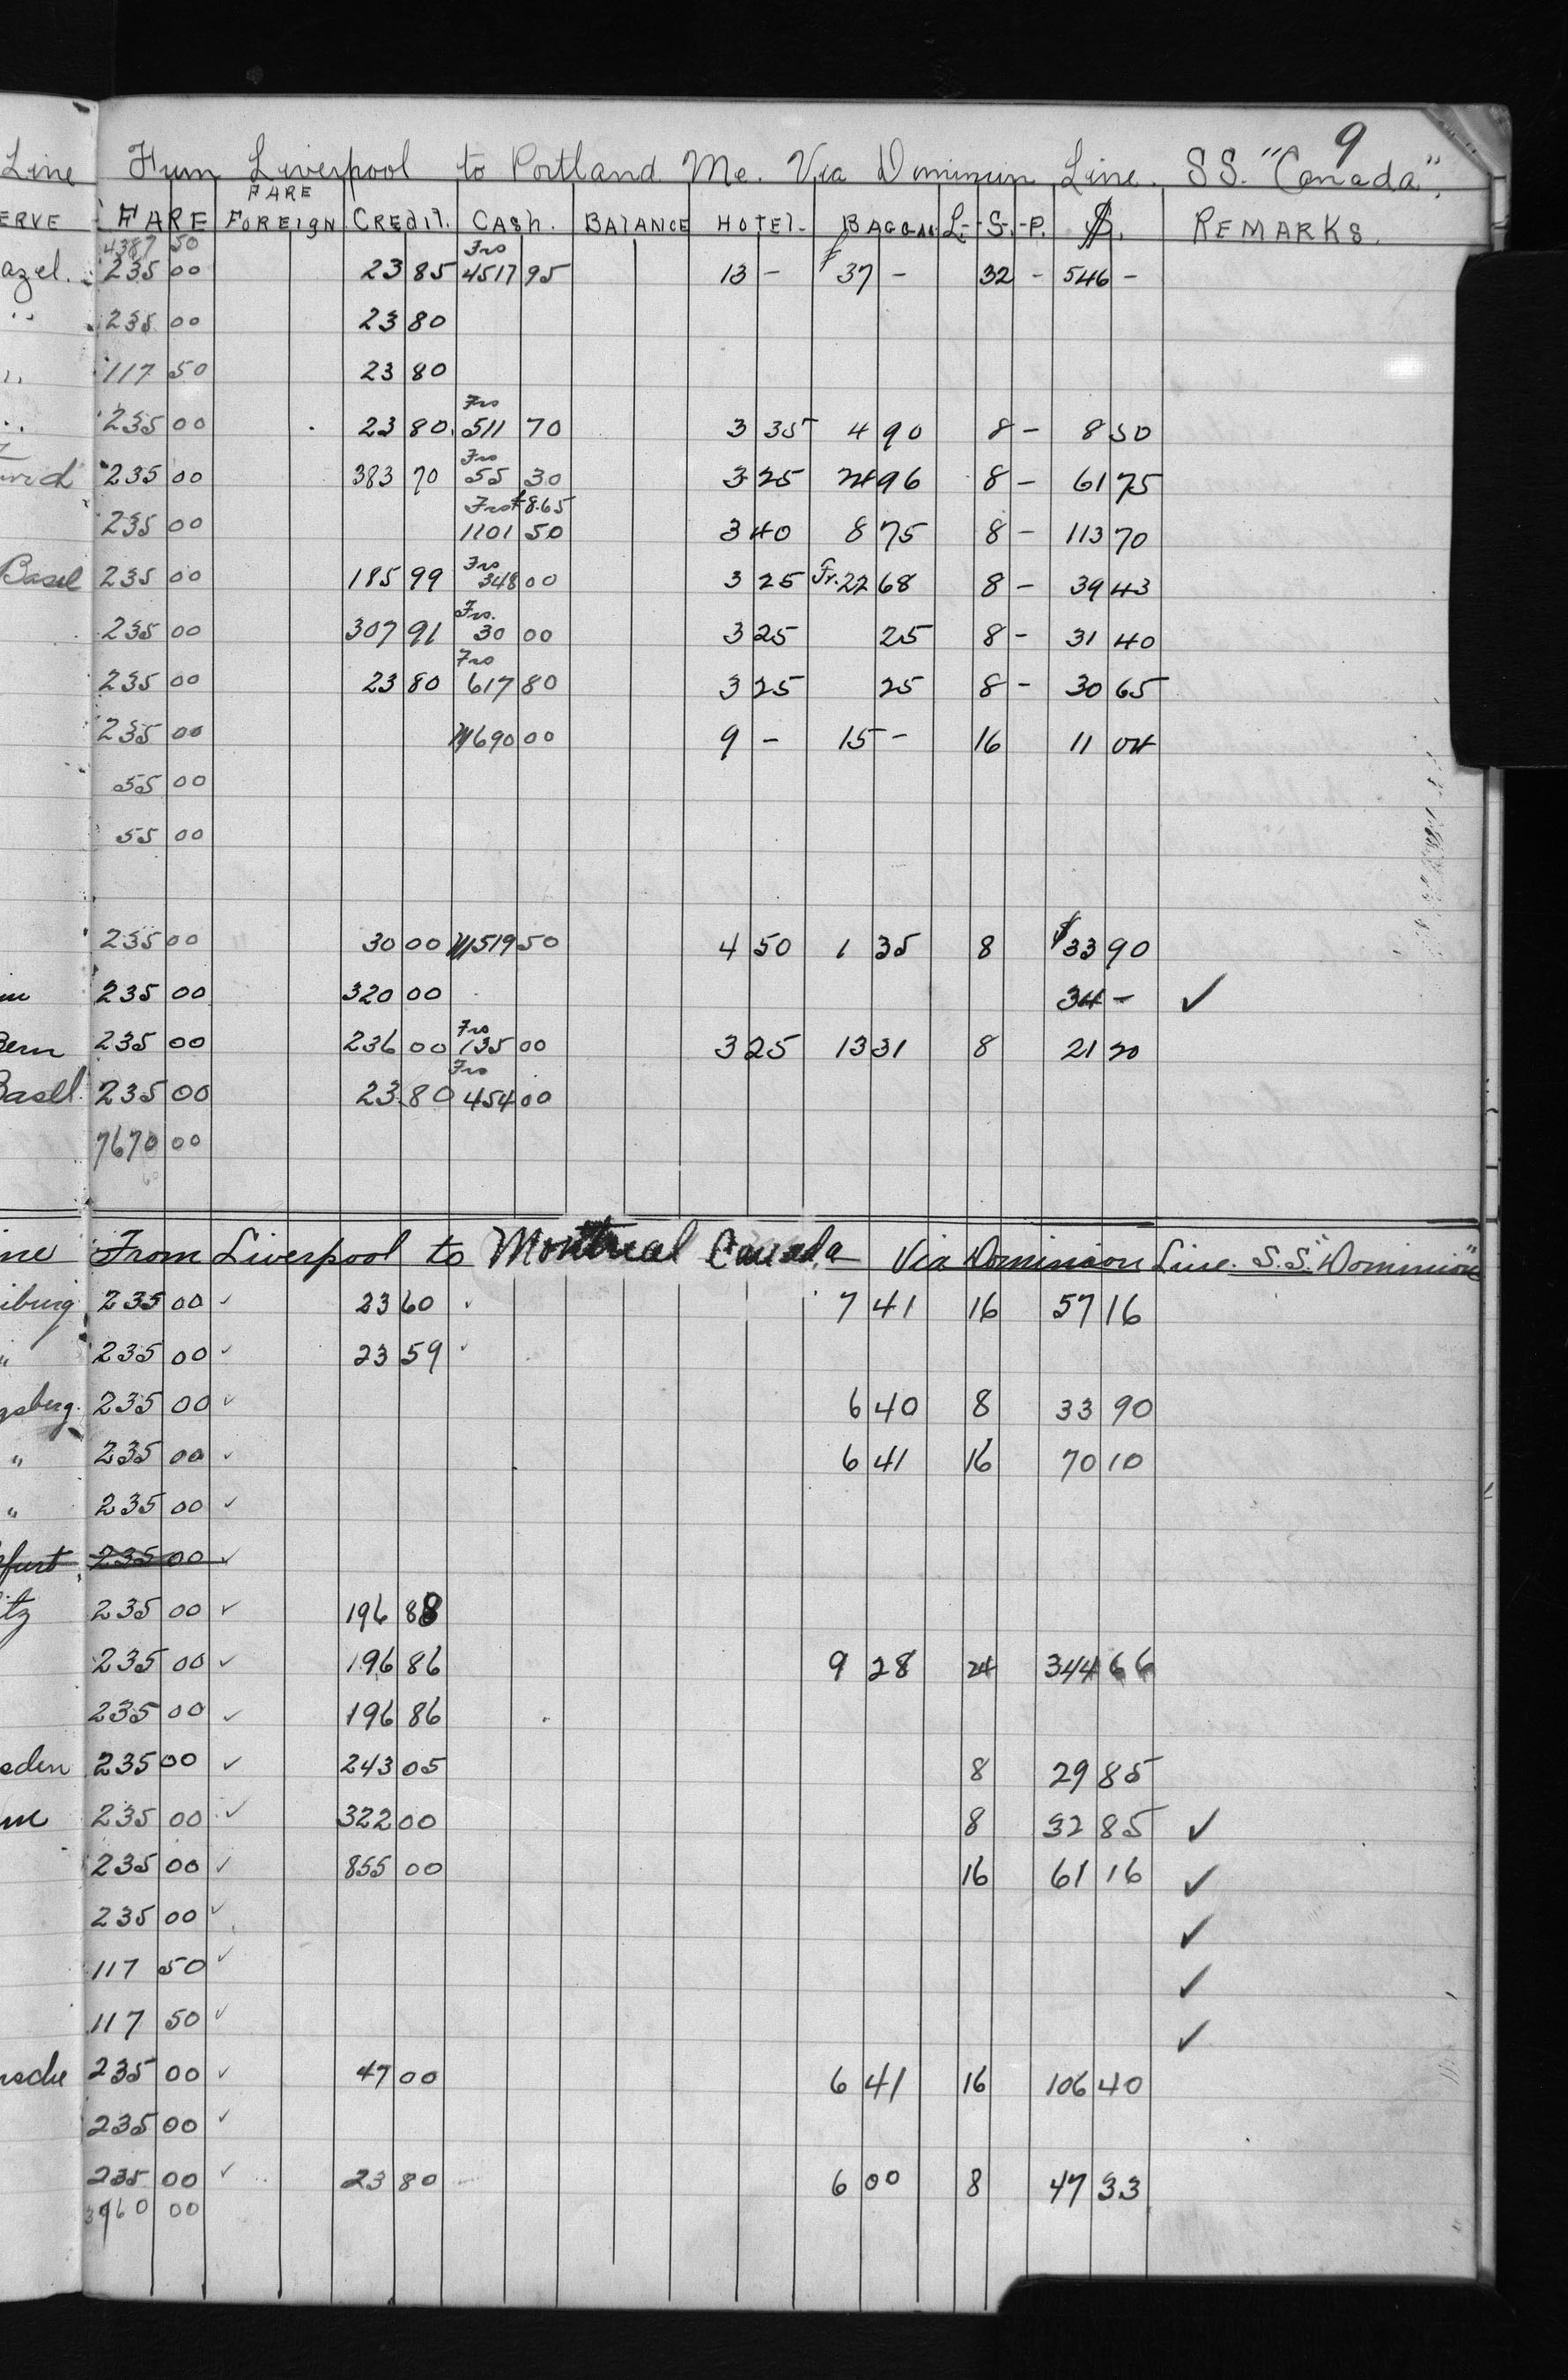 9
Line From Liverpool to Portland Me. Via Dominion Line. SS. "Canada".
ERVE FARE FARE FOREIGN CREDIT. CASH. BALANCE HOTEL- BAGGAG L- -S- -P. $. REMARKS.
4387 50 Frs
azel. 235 00 23 85 4517 95 13 - F 37 - 32 - 546 -
" 235 00 23 80
" 117 50 23 80
Frs
" 235 00 23 80 511 70 3 35 4 90 8 - 8 50
Frs
235 00 383 70 55 30 3 25 24 96 8 - 61 75
Frs $8.65
235 00 1101 50 3 40 8 75 8 - 113 70
Frs
Basel 235 00 185 99 348 00 3 25 Fr. 22 68 8 - 39 43
Frs.
235 00 307 91 30 00 3 25 25 8 - 31 40
Frs
235 00 23 80 617 80 3 25 25 8 - 30 65
235 00 M 690 00 9 - 15 - 16 11 04
55 00
55 00
235 00 30 00 M 519 50 4 50 1 35 8 $ 33 90
235 00 320 00 34 - ✓
Frs
Bern 235 00 236 00 135 00 3 25 13 31 8 21 20
Frs
Basel. 235 00 23 80 454 00
7670 00
ine From Liverpool to Montreal Canada Via Dominion Line. S.S. "Dominion"
iburg 235 00 ✓ 23 60 ✓ 7 41 16 57 16
" 235 00 ✓ 23 59 ✓
gsberg. 235 00 ✓ 6 40 8 33 90
" 235 00 ✓ 6 41 16 70 10
" 235 00 ✓
furt 235 00 ✓
itz 235 00 ✓ 196 88
235 00 ✓ 196 86 9 28 24 344 66
235 00 ✓ 196 86
sden 235 00 ✓ 243 05 8 29 85
235 00 ✓ 322 00 8 32 85 ✓
235 00 ✓ 855 00 16 61 16 ✓
235 00 ✓ ✓
117 50 ✓ ✓
117 50 ✓ ✓
sche 235 00 ✓ 47 00 6 41 16 106 40
235 00 ✓
235 00 ✓ 23 80 6 00 8 47 33
3960 00